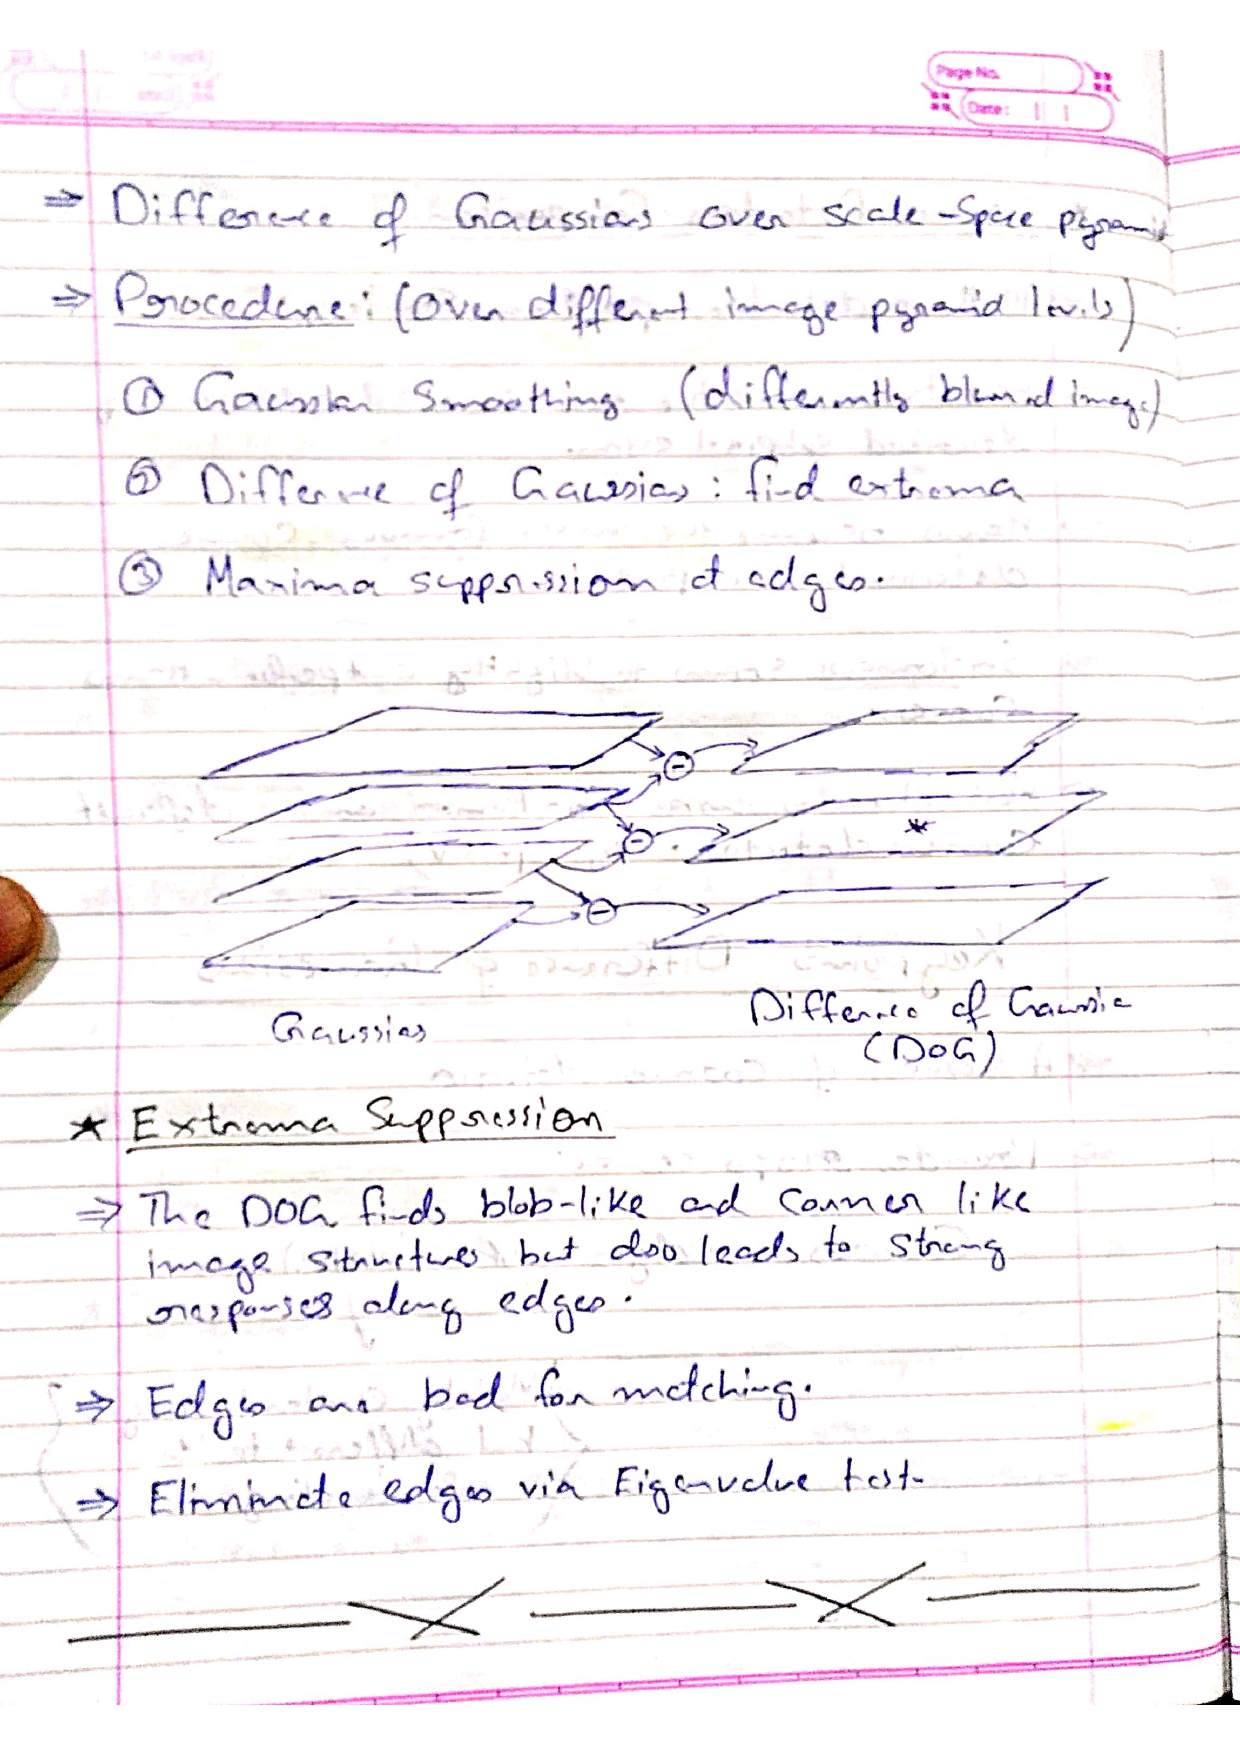 Page No.
Date:
⇒ Difference of Gaussians over scale-space pyramid
⇒ Procedure: (Over different image pyramid levels)
① Gaussian Smoothing (differently blurred image)
② Difference of Gaussians: find extrema
③ Maxima suppression at edges.
Gaussians
Difference of Gaussia
(DOG)
★ Extrema Suppression
⇒ The DOG finds blob-like and corner like
image structures but also leads to strong
responses along edges.
⇒ Edges are bad for matching.
⇒ Eliminate edges via Eigenvalue test.